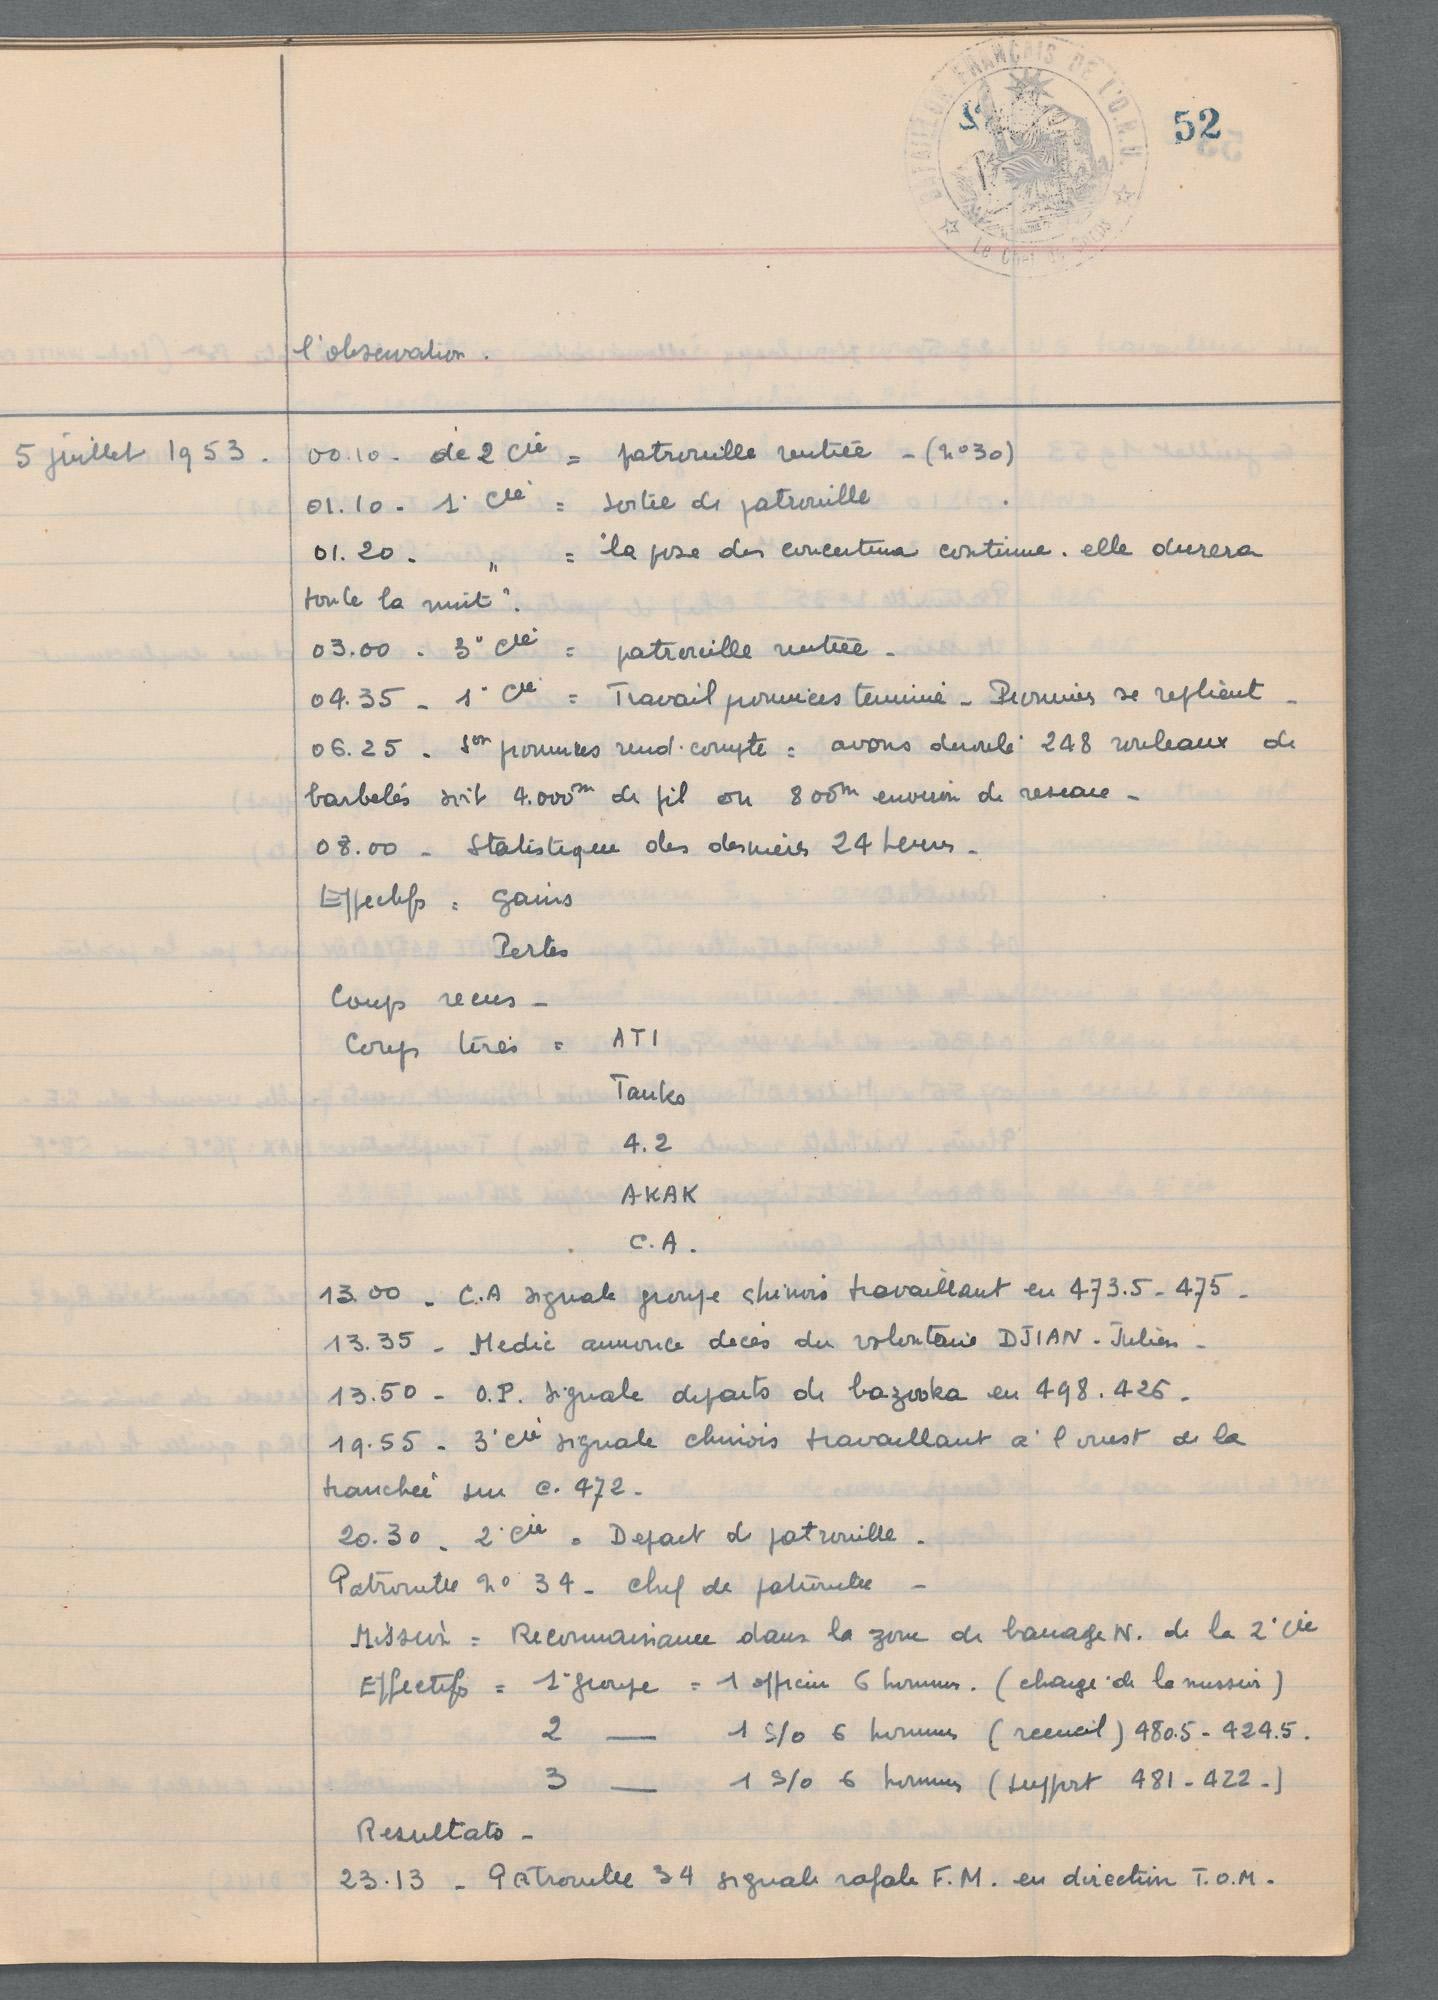 BATAILLON FRANÇAIS DE L'O.N.U.
Le Chef de Corps
52
l'observation.
5 juillet 1953. 00.10 - de 2 Cie = patrouille rentrée - (n°30)
01.10 - 1° Cie = sortie de patrouille
01.20 - " = "la pose des concertina continue. elle durera
toute la nuit".
03.00 - 3° Cie = patrouille rentrée -
04.35 - 1° Cie = Travail pionniers terminé - Pionniers se replient -
06.25 - Son pionniers rend-compte = avons deroulé 248 rouleaux de
barbelés soit 4.000m de fil ou 800m environ de reseau -
08.00 - Statistique des dernières 24 heures -
Effectifs = Gains
Pertes
Coups recus -
Coups tirés = ATI
Tanks
4.2
AKAK
C.A.
13.00 - C.A signale groupe chinois travaillant en 473.5 - 475 -
13.35 - Medic annonce deces du volontaire DJIAN - Julien -
13.50 - O.P. signale departs de bazooka en 498.426 -
19.55 - 3° Cie signale chinois travaillant à l'ouest de la
tranchée sur C. 472 -
20.30 - 2° Cie = Depart de patrouille -
Patrouille n° 34 - chef de patrouille -
Mission = Reconnaissance dans la zone de barrage N. de la 2° Cie
Effectifs = 1° groupe = 1 officier 6 hommes. (chargé de la mission)
2 — 1 S/o 6 hommes (recueil) 480.5 - 424.5.
3 — 1 S/o 6 hommes (support 481 - 422 -)
Resultats -
23.13 - Patrouille 34 signale rafale F.M. en direction T.O.M.